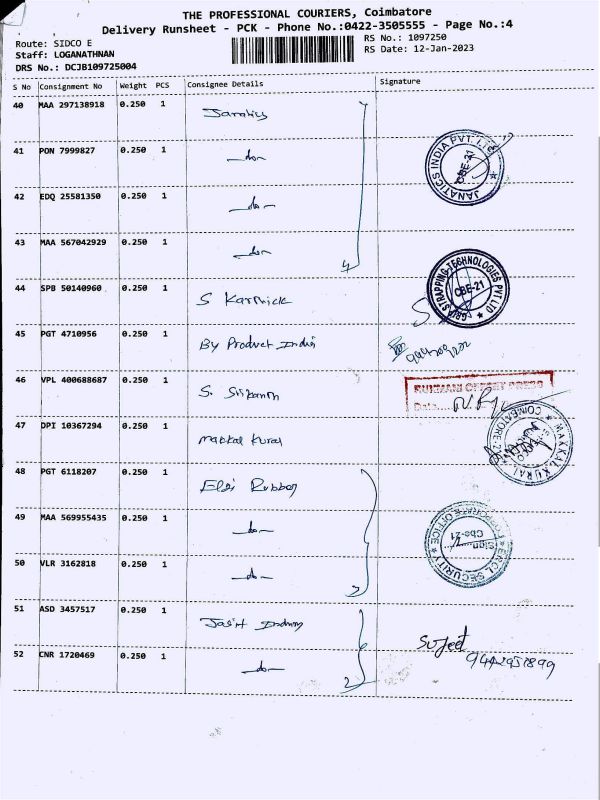 THE PROFESSIONAL COURIERS, Coimbatore
Delivery Runsheet - PCK - Phone No.:0422-3505555 - Page No.:4
Route: SIDCO E RS No.: 1097250
Staff: LOGANATHNAN RS Date: 12-Jan-2023
DRS No.: DCJB109725004
S No Consignment No Weight PCS Consignee Details Signature
40 MAA 297138918 0.250 1
41 PON 7999827 0.250 1 -do-
JANATICS INDIA PVT. LTD. CBE-21
42 EDQ 25581350 0.250 1 -do-
43 MAA 567042929 0.250 1 -do-
4
44 SPB 50140960 0.250 1 S Karthick
STRAPPING TECHNOLOGIES PVT LTD CBE-21
45 PGT 4710956 0.250 1 By Product India
46 VPL 400688687 0.250 1 S. Srikanth
RUKMANI OFFSET PRESS
Date
47 DPI 10367294 0.250 1 Makkal Kural
MAKKAL KURAL COIMBATORE
48 PGT 6118207 0.250 1 Elgi Rubber
49 MAA 569955435 0.250 1 -do-
ERCL SECURITY CORPORATE OFFICE Sign Cbe-21
50 VLR 3162818 0.250 1 -do-
3
51 ASD 3457517 0.250 1
Sujeet
52 CNR 1720469 0.250 1 -do-
2